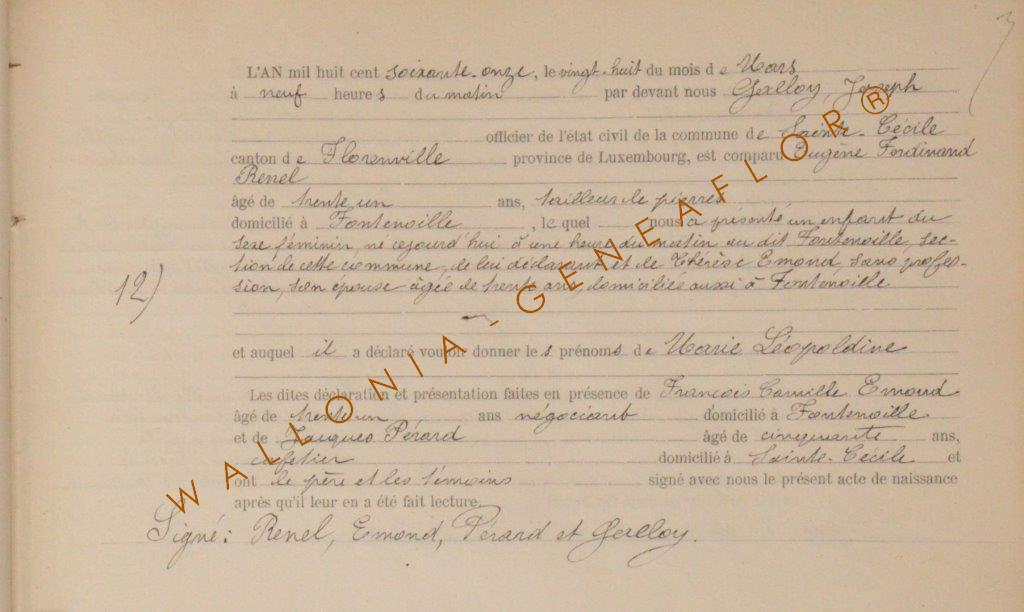 L'AN mil huit cent soixante-onze, le vingt-huit du mois de Mars
à neuf heures du matin par devant nous Galloy, Joseph
officier de l'état civil de la commune de Sainte-Cécile
canton de Florenville province de Luxembourg, est comparu Eugène Ferdinand
Renel
âgé de trente un ans, tailleur de pierres
domicilié à Fontenoille, le quel nous a présenté un enfant du
sexe féminin, né cejourd'hui à une heure du matin au dit Fontenoille, sec-
tion de cette commune, de lui déclarant et de Thérèse Emond, sans profes-
sion, son épouse âgée de trente ans, domiciliée aussi à Fontenoille
12)
et auquel il a déclaré vouloir donner les prénoms de Marie Léopoldine
Les dites déclaration et présentation faites en présence de François Camille Emond
âgé de trente un ans négociant domicilié à Fontenoille
et de Jacques Pérard âgé de cinquante ans,
cafetier domicilié à Sainte-Cécile et
ont le père et les témoins signé avec nous le présent acte de naissance
après qu'il leur en a été fait lecture.
Signé: Renel, Emond, Pérard et Galloy.
WALLONIA-GENEAFLOR®